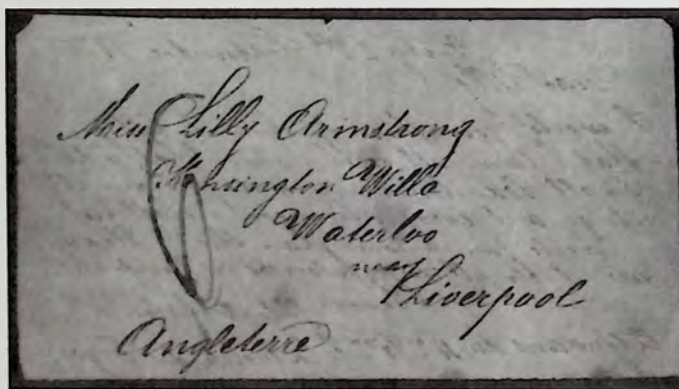 Miss Lilly Armstrong
Kensington Willa
Waterloo
near
Liverpool
Angleterre